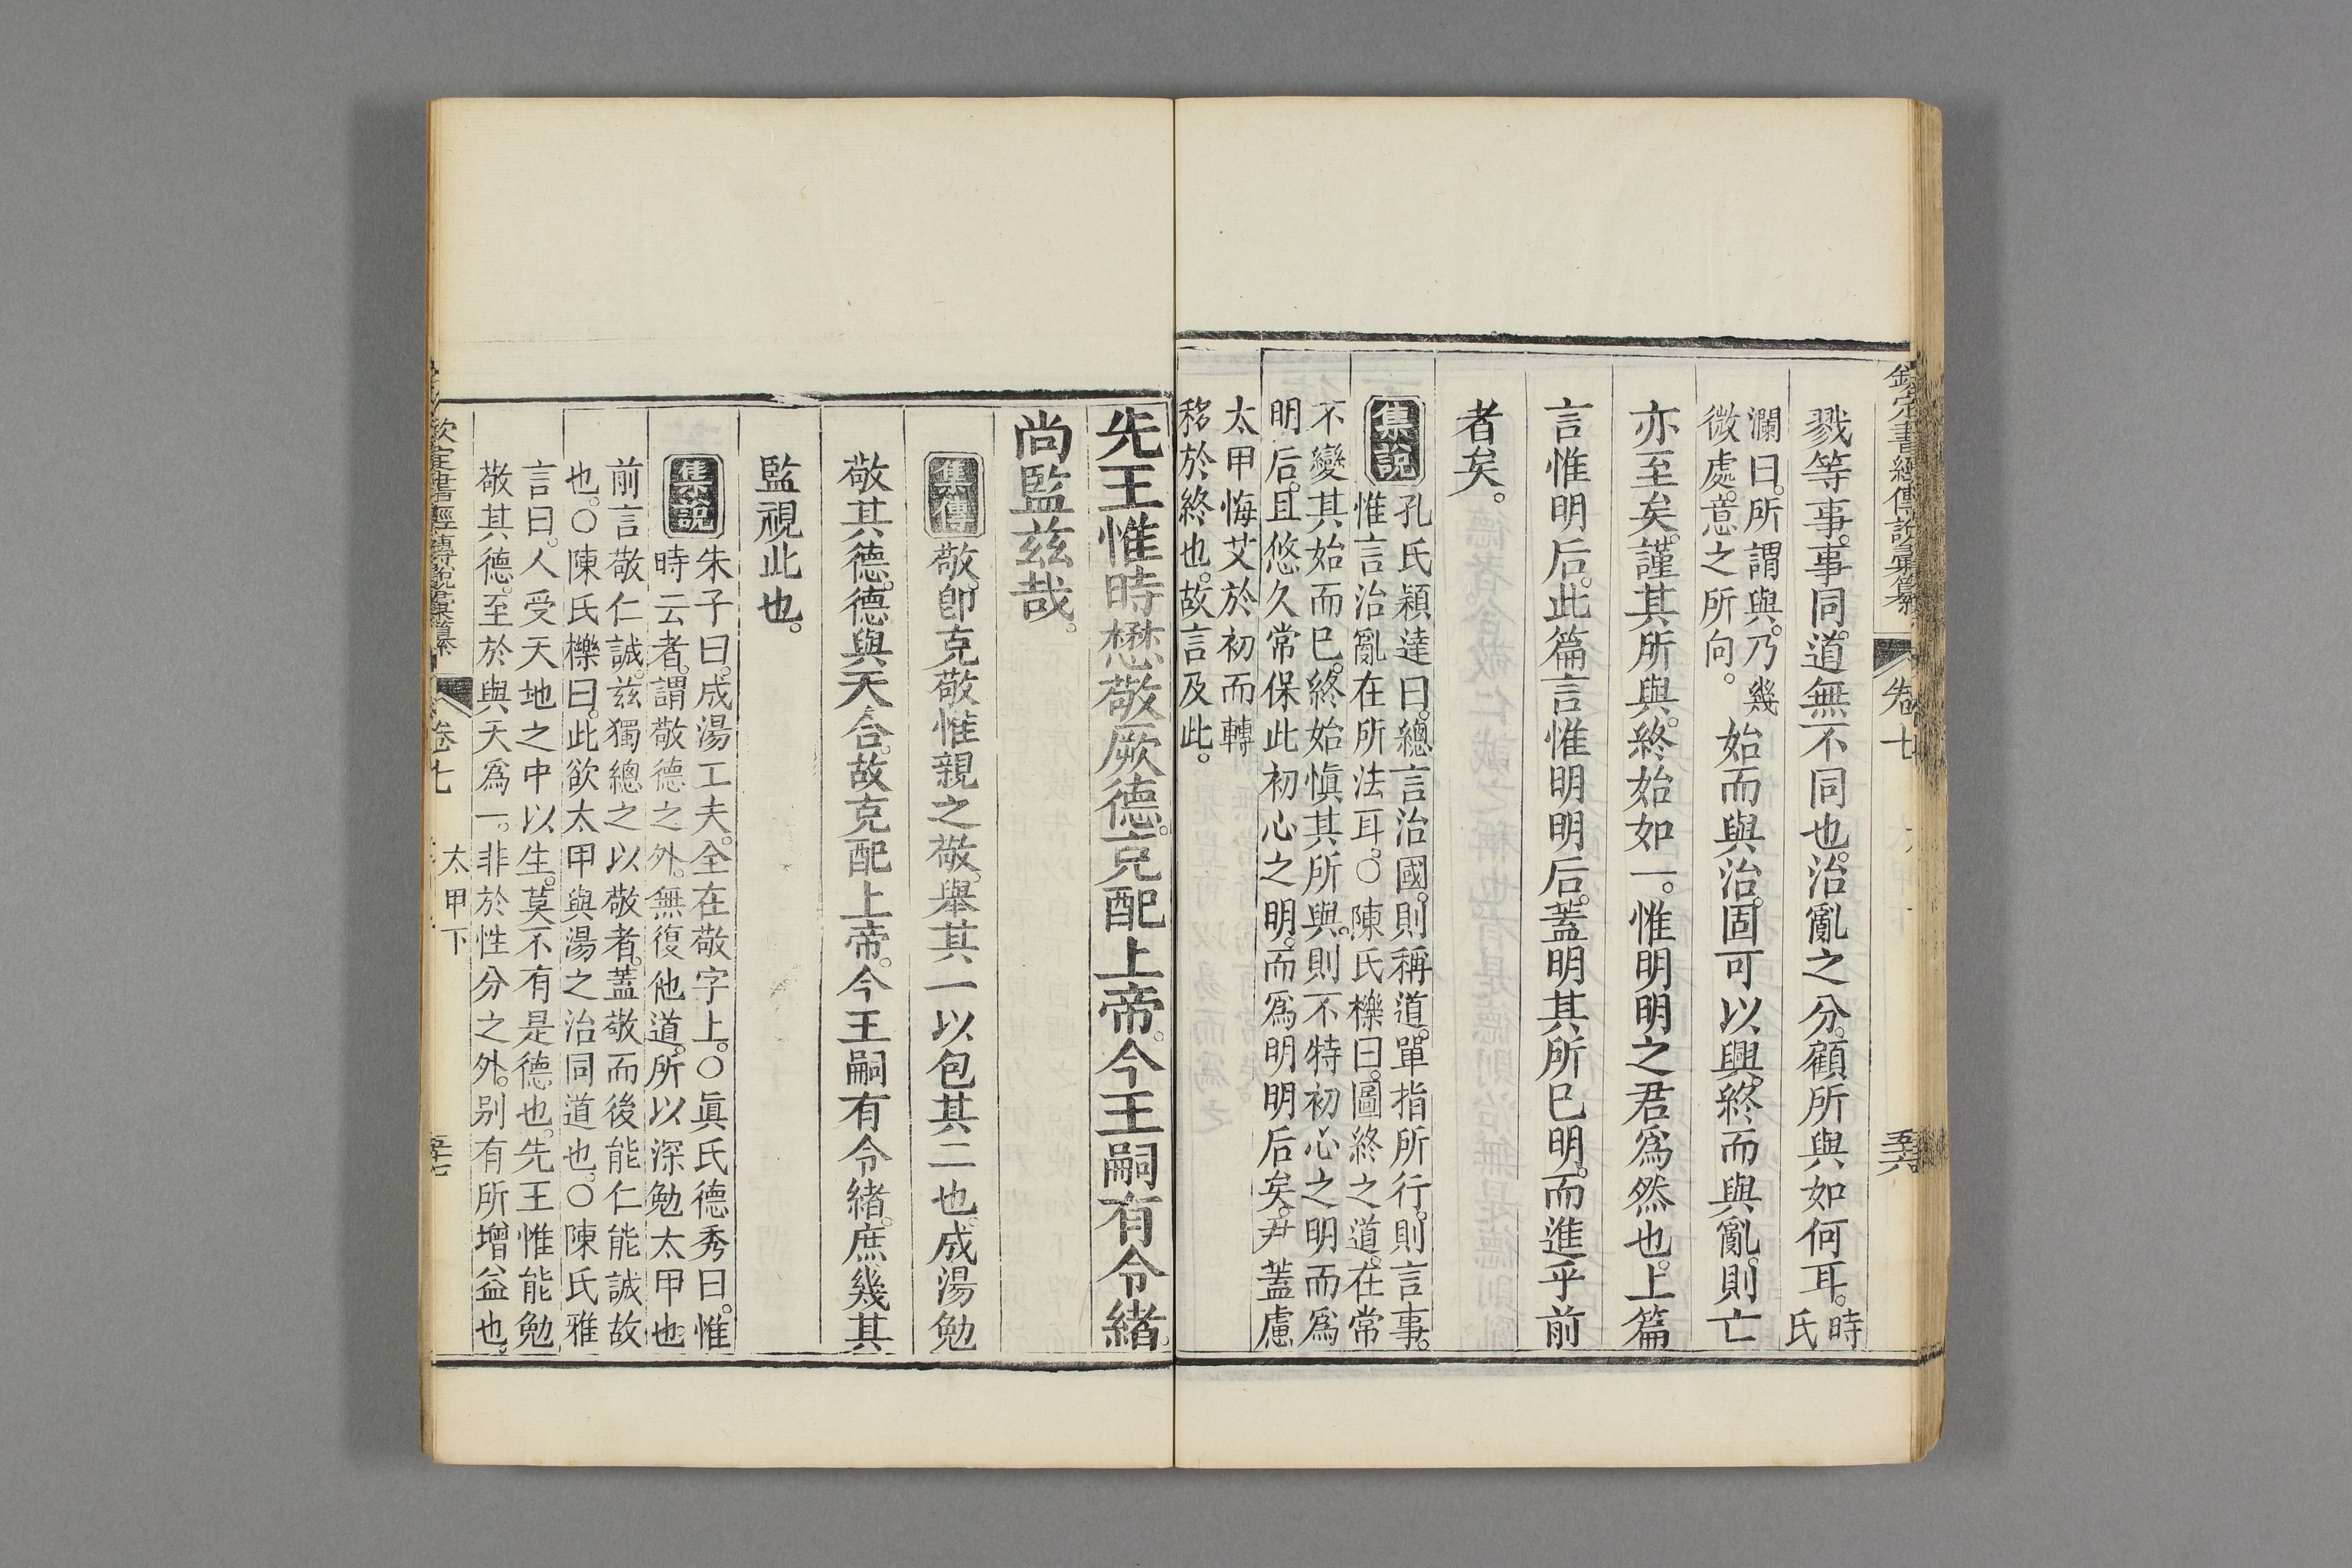 欽定書經傳說彙纂 卷七 五六
戮等事。事同道無不同也。治亂之分。顧所與如何耳。時氏
瀾曰。所謂與。乃幾微處。意之所向。始而與治。固可以興。終而與亂。則亡
亦至矣。謹其所與。終始如一。惟明明之君爲然也。上篇
言惟明后。此篇言惟明明后。蓋明其所已明。而進乎前
者矣。
集說
孔氏穎達曰。總言治國。則稱道。單指所行。則言事。
惟言治亂在所法耳。○陳氏櫟曰。圖終之道。在常
不變其始而已。終始愼其所與。則不特初心之明而爲
明后。且悠久常保此初心之明。而爲明明后矣。尹蓋慮
太甲悔艾於初而轉
移於終也。故言及此。
先王惟時懋敬厥德。克配上帝。今王嗣有令緒。
尚監茲哉。
集傳 敬。卽克敬惟親之敬。舉其一以包其二也。成湯勉
敬其德。德與天合。故克配上帝。今王嗣有令緒。庶幾其
監視此也。
集說
朱子曰。成湯工夫。全在敬字上。○眞氏德秀曰。惟
時云者。謂敬德之外。無復他道。所以深勉太甲也。
前言敬仁誠。茲獨總之以敬者。蓋敬而後能仁能誠故
也。○陳氏櫟曰。此欲太甲與湯之治同道也。○陳氏雅
言曰。人受天地之中以生。莫不有是德也。先王惟能勉
敬其德。至於與天爲一。非於性分之外。别有所增益也。
欽定書經傳說彙纂 卷七 太甲下 五七